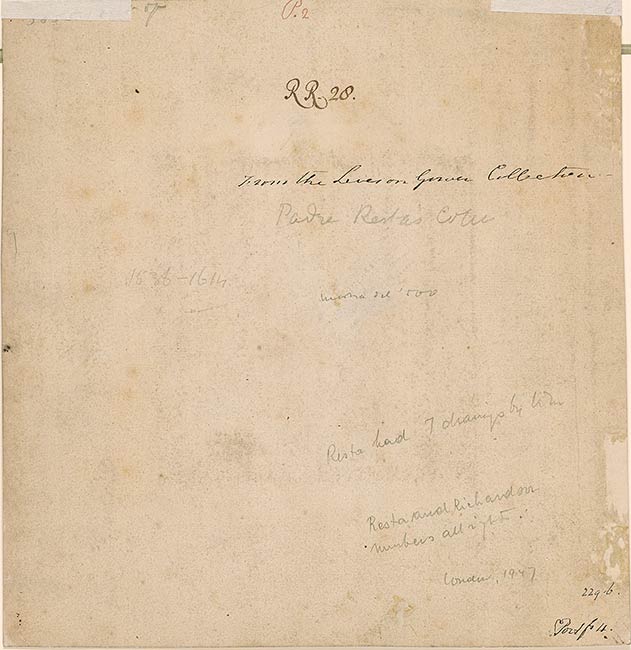 P. 2
RR. 28.
From the Leveson Gower Collection
Padre Resta's
1536-1614
'500
Resta had 7 drawings by him
Resta and Richardson
numbers all right.
London, 1947
229.b.
Portfo 4.